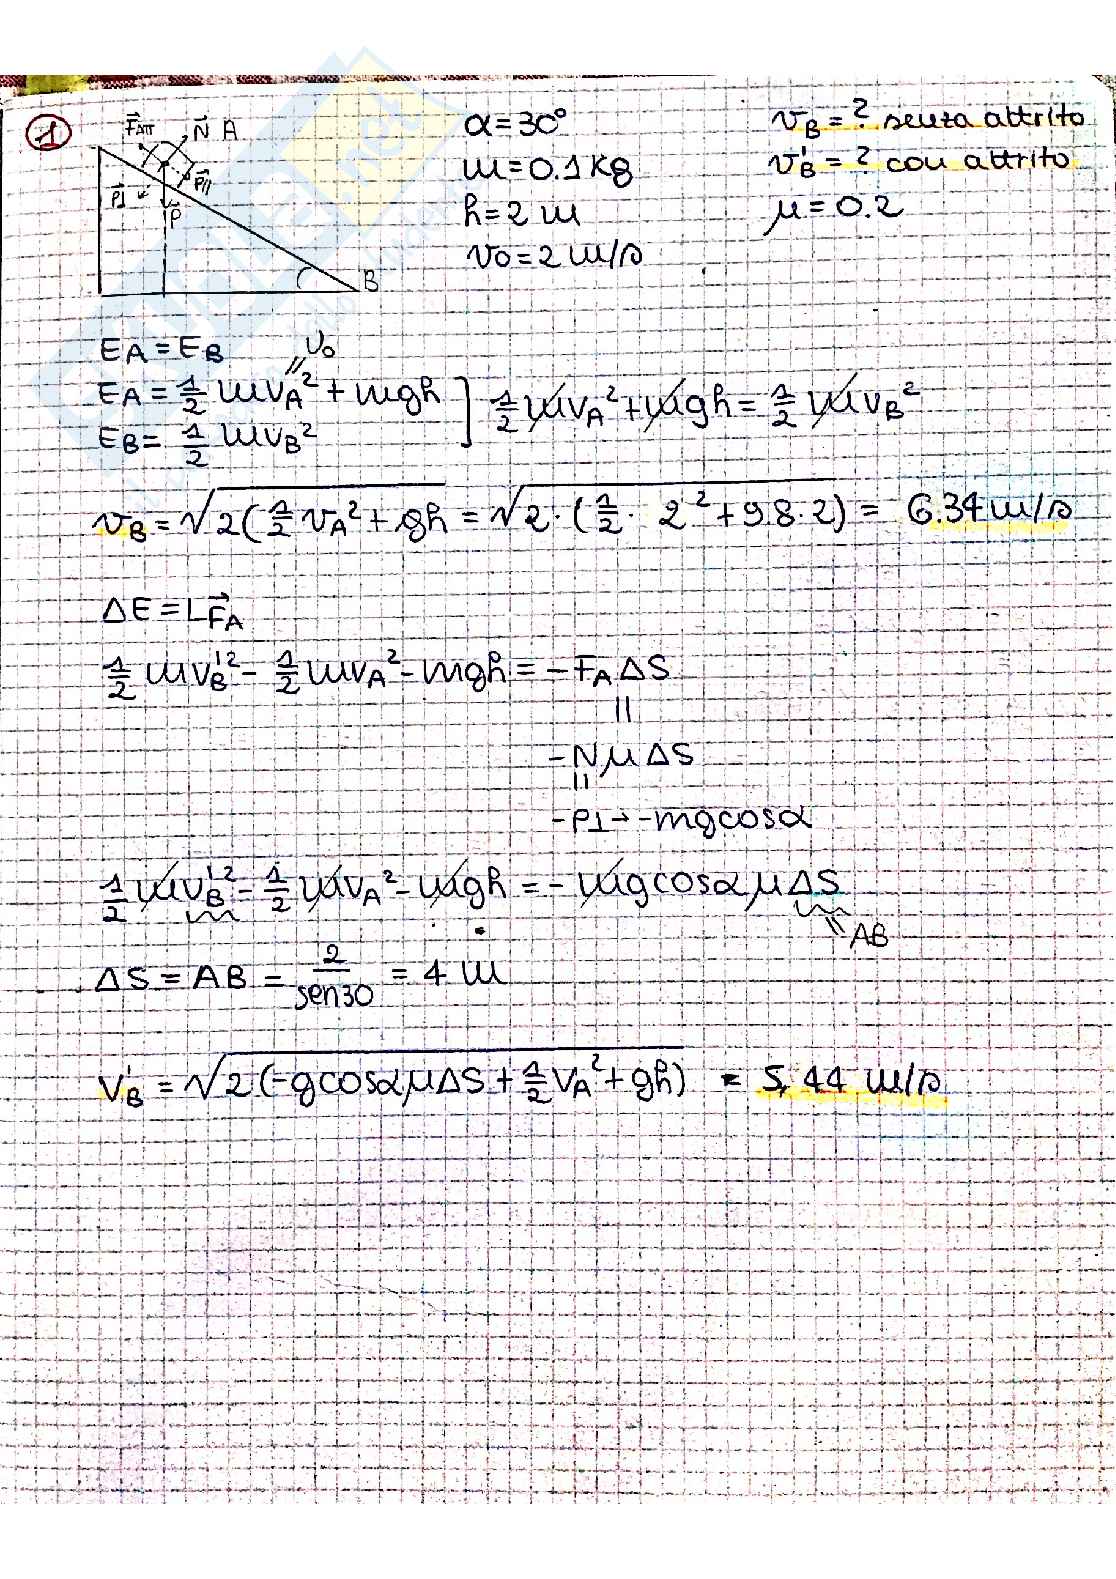 1
F⃗ATT N⃗ A
P⃗⊥ P⃗//
P⃗
B
α = 30°
m = 0.1 kg
h = 2 m
v0 = 2 m/s
vB = ? senza attrito
v'B = ? con attrito
μ = 0.2
EA = EB
v0
=
EA = 1/2 mvA² + mgh ] 1/2 mvA² + mgh = 1/2 mvB²
EB = 1/2 mvB²
vB = √2(1/2 vA² + gh = √2·(1/2· 2² + 9.8·2) = 6.34 m/s
ΔE = LF⃗A
1/2 mv'B² - 1/2 mvA² - mgh = - FA ΔS
=
- N μ ΔS
=
- P⊥ → - mgcosα
1/2 mv'B² - 1/2 mvA² - mgh = - mgcosα μ ΔS
= AB
ΔS = AB = 2/sen30 = 4 m
v'B = √2(-gcosα μ ΔS + 1/2 vA² + gh) = 5,44 m/s